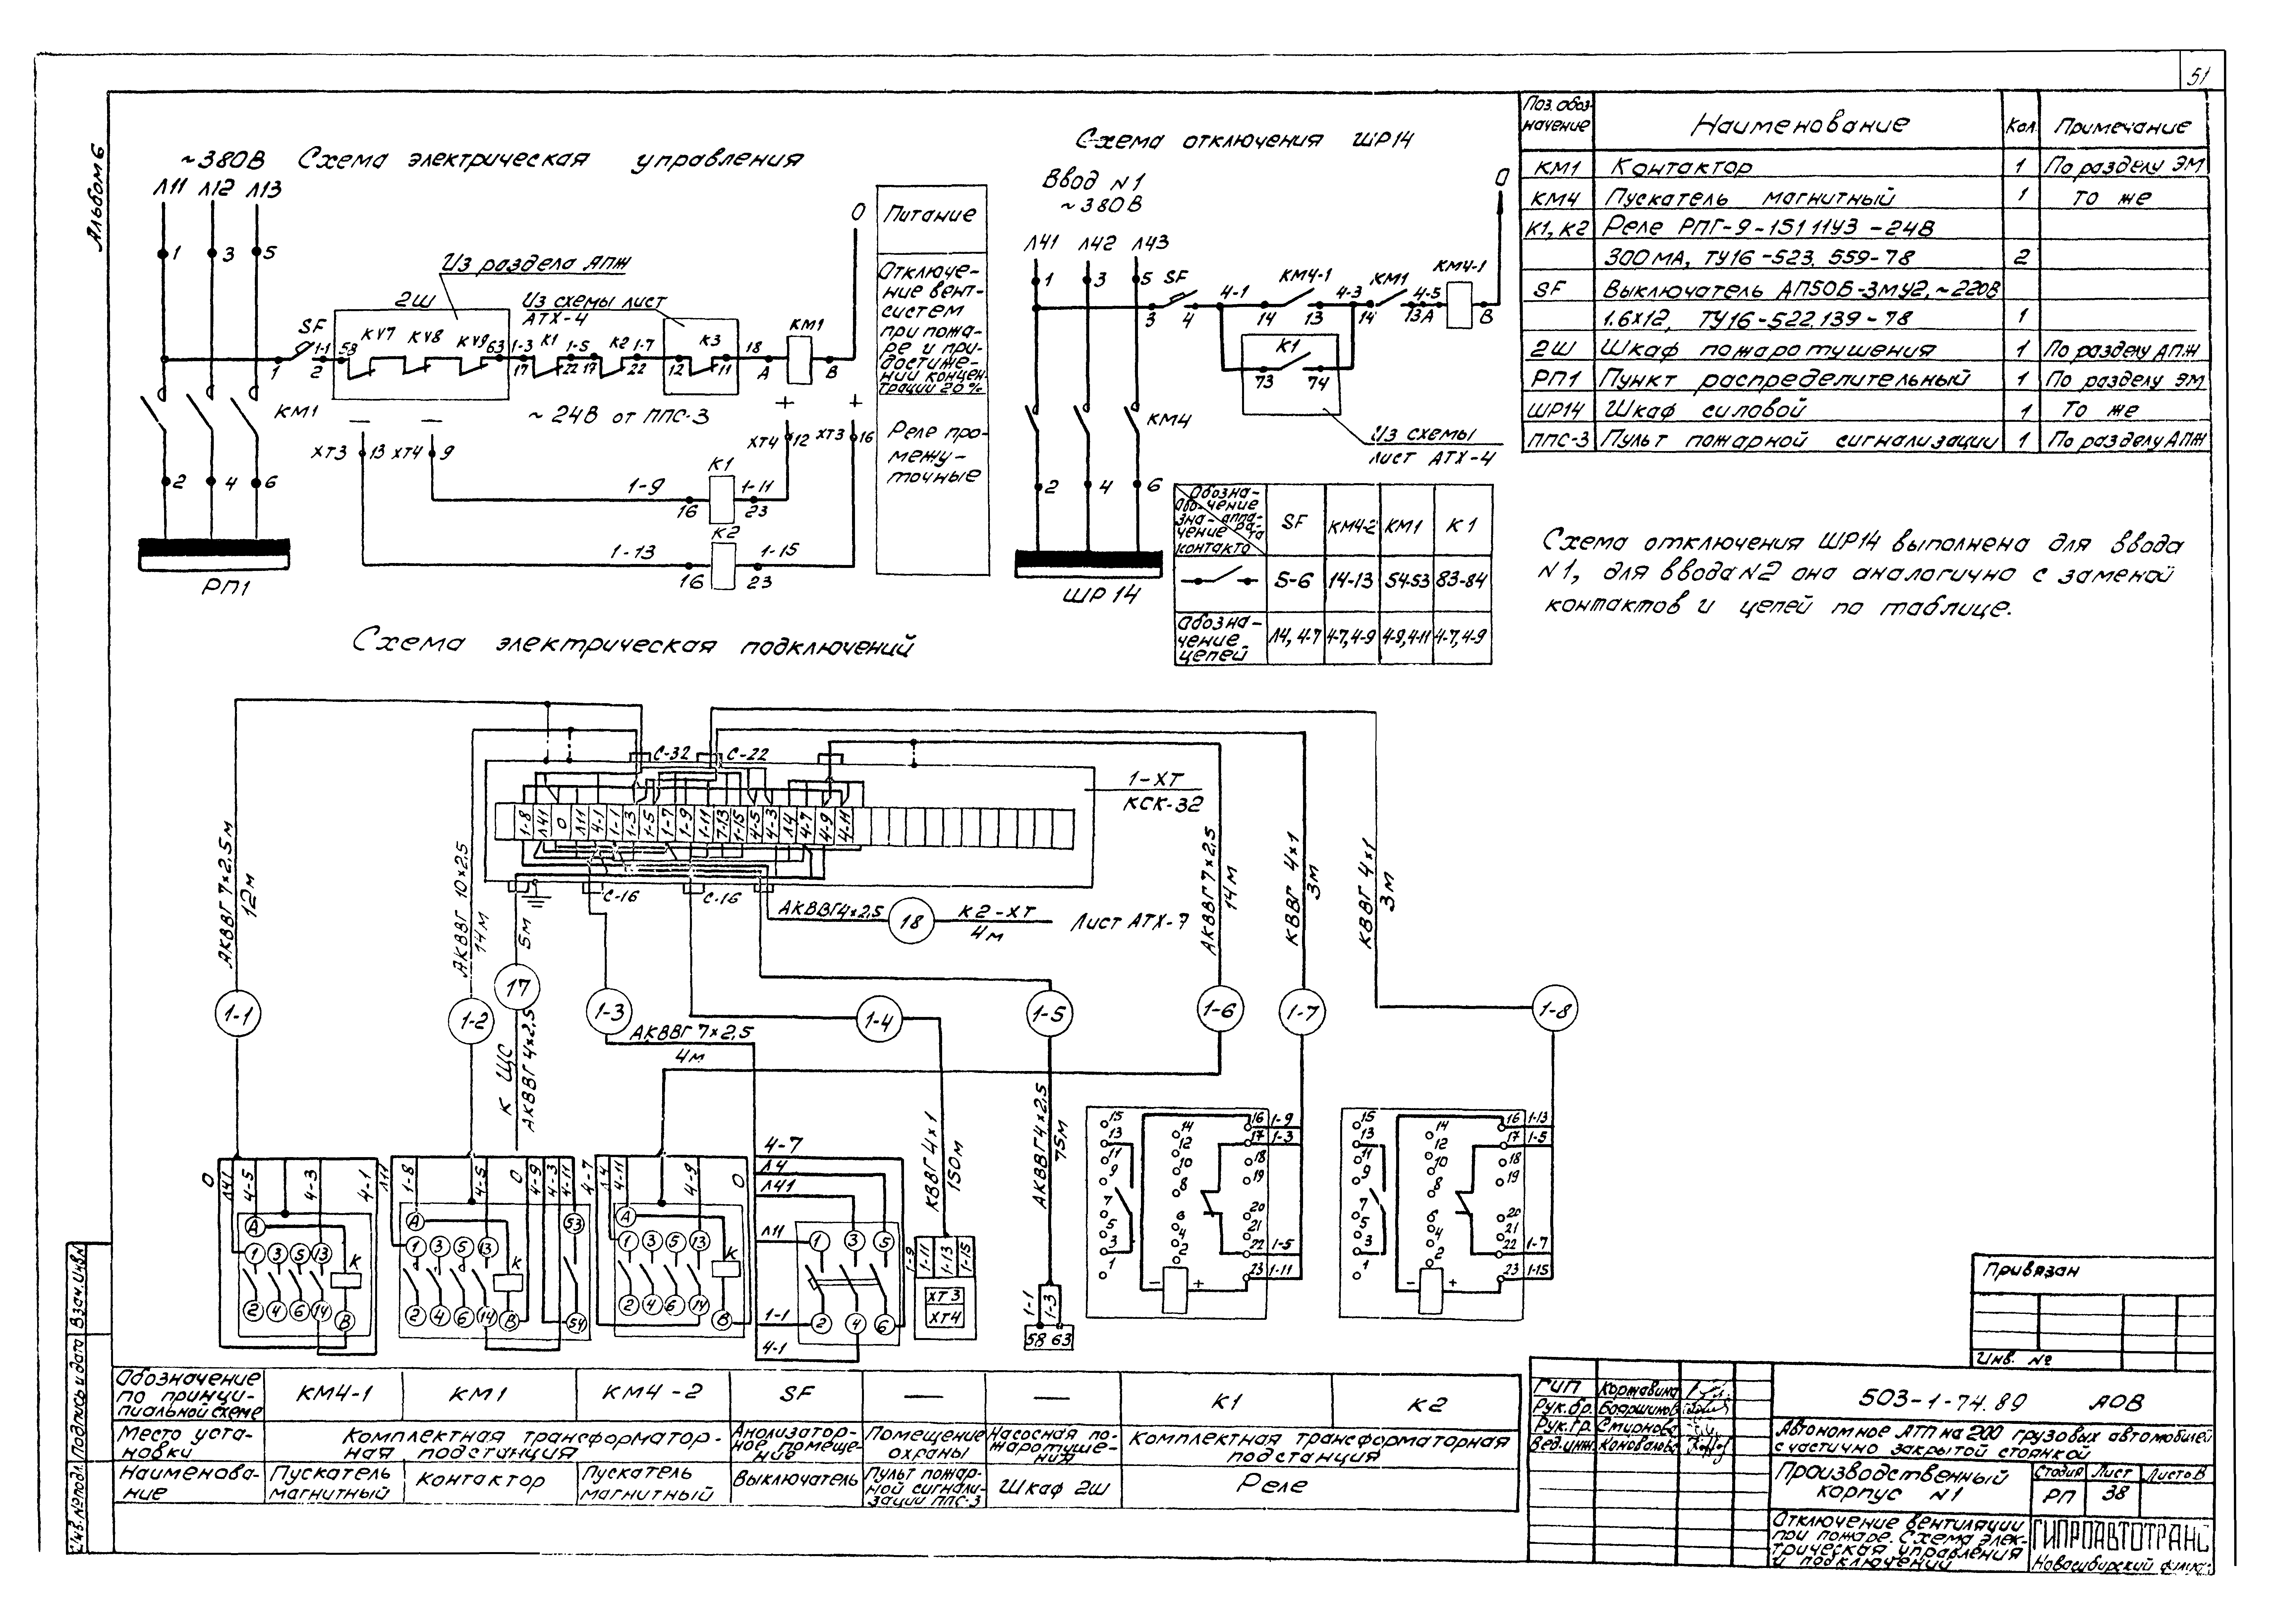 51
Альбом 6
Схема электрическая управления
~380В
Л11 Л12 Л13
1 3 5
Из раздела АПЖ
2Ш
Из схемы лист
АТХ-4
SF
KV7 KV8 KV9
1-1 53 63 1-3 K1 1-5 K2 1-7 K3 18 KM1
1 2 17 22 17 22 12 11 А В
О
КМ1
~24В от ППС-3
ХТ3 13 ХТ4 9
ХТ4 12 ХТ3 16
2 4 6
1-9 K1 1-11
16 23
K2
1-13 1-15
16 23
РП1
Питание
Отключе-
ние вент-
систем
при пожа-
ре и при
достиже-
нии концен-
трации 20%
Реле про-
межу-
точные
Схема отключения ШР14
Ввод N1
~380В
Л41 Л42 Л43
О
1 3 5
SF
КМ4-1 КМ1 КМ4-1
4-1 4-3 4-5
3 4 14 13 14 13А В
K1
73 74
КМ4
Из схемы
лист АТХ-4
2 4 6
ШР 14
Обозна-
чение
аппа-
рата
Обо-
зна-
чение
контакта
SF КМ4-2 КМ1 К1
5-6 14-13 54-53 83-84
Обозна-
чение
цепей
Л4, 4-7 4-7,4-9 4-9,4-11 4-7,4-9
Поз. обоз-
начение
Наименование
Кол.
Примечание
КМ1 Контактор 1 По разделу ЭМ
КМ4 Пускатель магнитный 1 То же
К1, К2 Реле РПГ-9-15111У3-24В
300 МА, ТУ16-523.559-78 2
SF Выключатель АП50Б-3МУ2,~220В
1.6х12, ТУ16-522.139-78 1
2Ш Шкаф пожаротушения 1 По разделу АПЖ
РП1 Пункт распределительный 1 По разделу ЭМ
ШР14 Шкаф силовой 1 То же
ППС-3 Пульт пожарной сигнализации 1 По разделу АПЖ
Схема отключения ШР14 выполнена для ввода
N1, для ввода N2 она аналогично с заменой
контактов и цепей по таблице.
Схема электрическая подключений
С-32 С-22
1-ХТ
КСК-32
1-8 Л41 О Л11 4-1 1-1 1-3 1-5 1-7 1-9 1-11 7-13 1-15 4-5 4-3 Л4 4-7 4-9 4-11
С-16 С-16
АКВВГ 7х2,5
12м
АКВВГ 10х2,5
14м
5м
АКВВГ4х2,5
18
К2-ХТ
4м
Лист АТХ-7
АКВВГ7х2,5
14м
КВВГ 4х1
3м
КВВГ 4х1
3м
1-1 1-2 17 1-3 1-4 1-5 1-6 1-7 1-8
К ЩС
АКВВГ 4х2,5
АКВВГ 7х2,5
4м
КВВГ 4х1
150м
АКВВГ4х2,5
75м
О Л41 4-5 4-3 4-1
А
1 3 5 13 К
2 4 6 14 В
Л11 1-8 4-5 О 4-9 4-3 4-11
А
1 3 5 13 К 53
2 4 6 14 В 54
4-7 Л4 4-11 4-9 О
А
1 3 5 13 К
2 4 6 14 В
4-7
Л4
Л41
Л11
1 3 5
1-1
2 4 6
4-1
1-9 1-11 1-13 1-15
ХТ3
ХТ4
1-1 1-3
58 63
15 13 11 9 7 5 3 1
14 12 10 8 6 4 2
16 1-9
17 1-3
18
19
20
21
22 1-5
23 1-11
- +
15 13 11 9 7 5 3 1
14 12 10 8 6 4 2
16 1-13
17 1-5
18
19
20
21
22 1-7
23 1-15
- +
Обозначение
по принци-
пиальной схеме
КМ4-1 КМ1 КМ4-2 SF — — К1 К2
Место уста-
новки
Комплектная трансформатор-
ная подстанция
Анолизатор-
ное помеще-
ние
Помещение
охраны
Насосная по-
жаротуше-
ния
Комплектная трансформаторная
подстанция
Наименова-
ние
Пускатель
магнитный
Контактор
Пускатель
магнитный
Выключатель
Пульт пожар-
ной сигнали-
зации ППС-3
Шкаф 2ш
Реле
Инв.№подл. Подпись и дата Взам.инв.N
Привязан
Инв. №
ГИП Коржавина
Рук.бр. Бояршинов
Рук.гр. Смирнова
Вед.инж. Коновалова
503-1-74.89 АОВ
Автономное АТП на 200 грузовых автомобилей
с частично закрытой стоянкой
Производственный
корпус N1
Стадия Лист Листов
РП 38
Отключение вентиляции
при пожаре. Схема элек-
трическая управления
и подключений
ГИПРОАВТОТРАНС
Новосибирский филиал